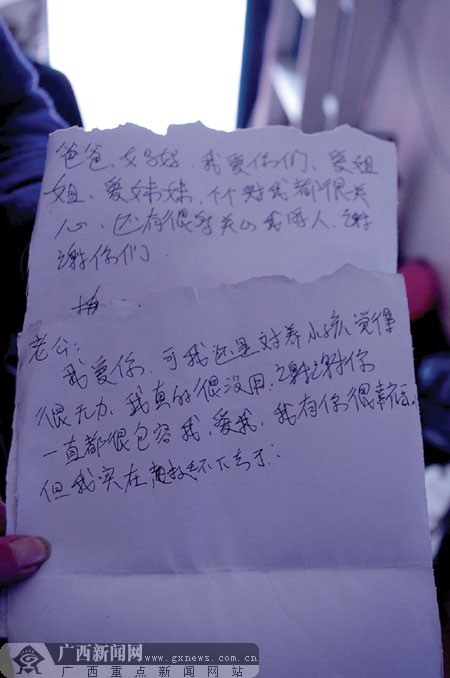 爸爸、妈妈,我爱你们、爱姐
姐、爱妹妹,你对我都很关
心、还有很多关心我的人、谢
谢你们
老公:
我爱你,可我还是对养小孩觉得
很无力、我真的很没用,谢谢你
一直都很包容我,爱我,我有你很幸福,
但我实在 不下去了
广西新闻网
www.gxnews.com.cn
广西重点新闻网站